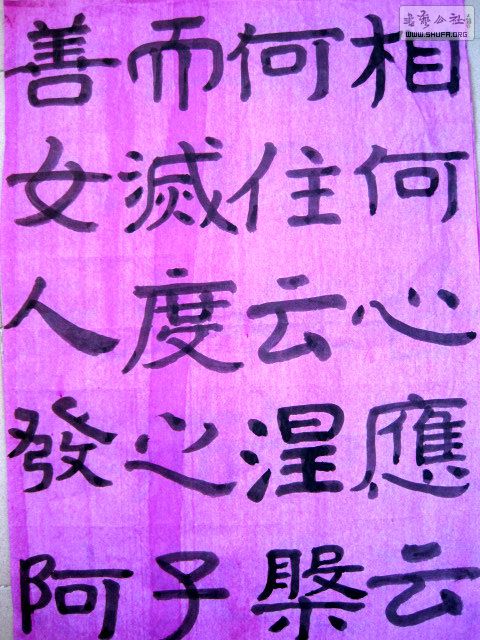 相何心應云
何住云涅槃
而滅度之子
善女人發阿
書法公社
WWW.SHUFA.ORG